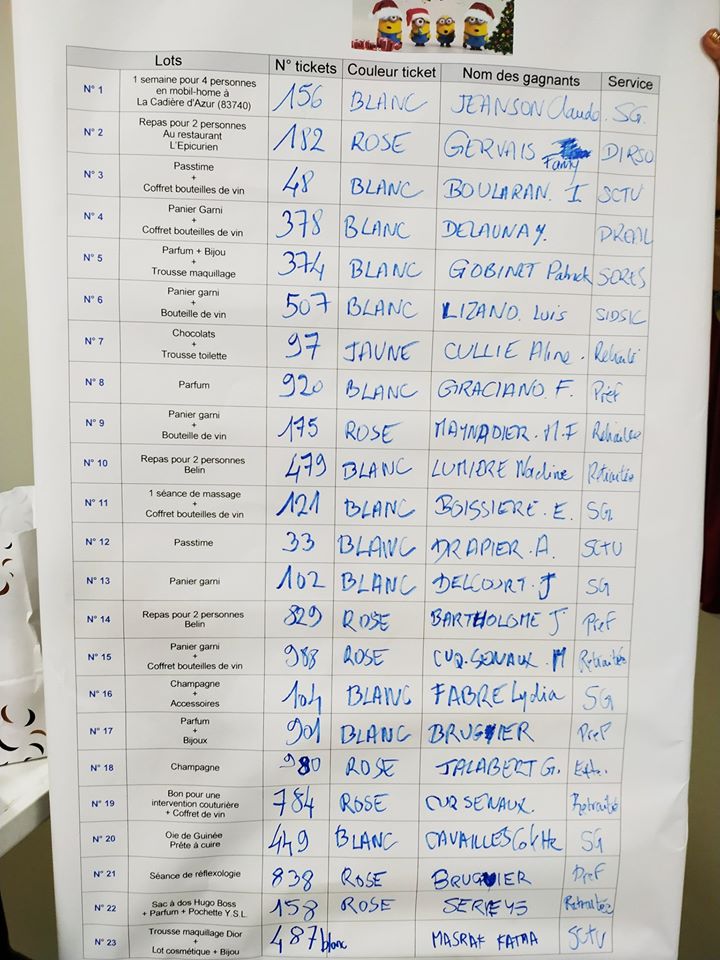 Lots N° tickets Couleur ticket Nom des gagnants Service
N° 1 1 semaine pour 4 personnes en mobil-home à La Cadière d'Azur (83740) 156 BLANC JEANSON Claude SG.
N° 2 Repas pour 2 personnes Au restaurant L'Epicurien 182 ROSE GERVAIS Fanny DIRSO
N° 3 Passtime + Coffret bouteilles de vin 48 BLANC BOULARAN. I SCTV
N° 4 Panier Garni + Coffret bouteilles de vin 378 BLANC DELAUNAY. DREAL
N° 5 Parfum + Bijou + Trousse maquillage 374 BLANC GOBINET Patrick SORES
N° 6 Panier garni + Bouteille de vin 507 BLANC LIZANO. Luis SIDSIC
N° 7 Chocolats + Trousse toilette 97 JAUNE CULLIE Aline.
N° 8 Parfum 920 BLANC GRACIANO. F. Préf
N° 9 Panier garni + Bouteille de vin 175 ROSE MAYNADIER. M.F Retraitée
N° 10 Repas pour 2 personnes Belin 479 BLANC LUMIERE Nadine Retraitée
N° 11 1 séance de massage + Coffret bouteilles de vin 121 BLANC BOISSIERE. E. SG
N° 12 Passtime 33 BLANC DRAPIER. A. SCTV
N° 13 Panier garni 102 BLANC DELCOURT. J SG
N° 14 Repas pour 2 personnes Belin 829 ROSE BARTHOLOME J Pref
N° 15 Panier garni + Coffret bouteilles de vin 988 ROSE CUQ. SENAUX. M Retraitée
N° 16 Champagne + Accessoires 104 BLANC FABRE Lydia SG
N° 17 Parfum + Bijoux 901 BLANC BRUGUIER Pref
N° 18 Champagne 980 ROSE JALABERT G.
N° 19 Bon pour une intervention couturière + Coffret de vin 784 ROSE CUQ SENAUX. Retraitée
N° 20 Oie de Guinée Prête à cuire 449 BLANC CAVAILLES Colette SG
N° 21 Séance de réflexologie 838 ROSE BRUGUIER Pref
N° 22 Sac à dos Hugo Boss + Parfum + Pochette Y.S.L. 158 ROSE SERIEYS Retraitée
N° 23 Trousse maquillage Dior + Lot cosmétique + Bijou 487 blanc MASRAF FATMA SCTV